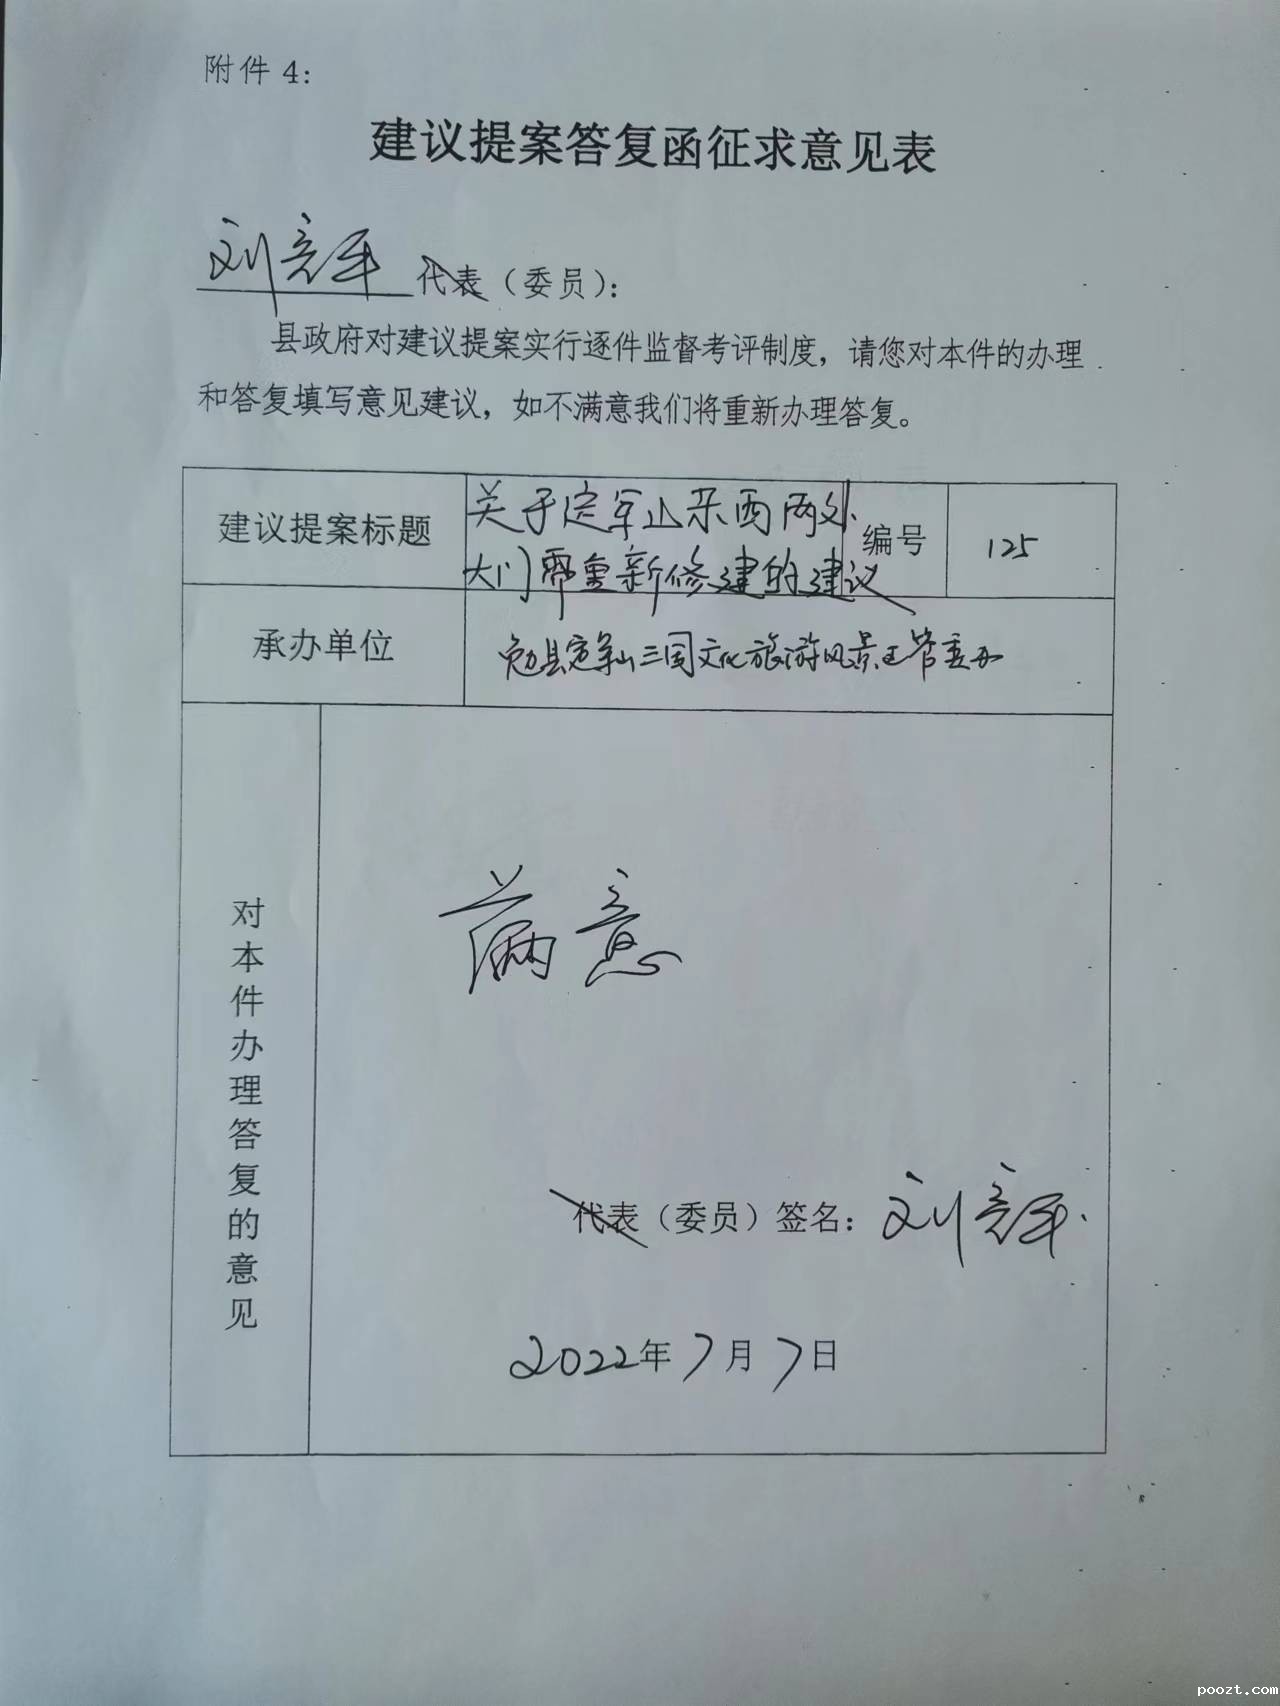 附件 4：
建议提案答复函征求意见表
刘彦军 代表（委员）：
县政府对建议提案实行逐件监督考评制度，请您对本件的办理
和答复填写意见建议，如不满意我们将重新办理答复。
建议提案标题
关于定军山东西两外
大门需重新修建的建议
编号
125
承办单位
勉县定军山三国文化旅游风景区管委办
对本件办理答复的意见
满意
代表（委员）签名：刘彦军
2022年7月7日
poozt.com